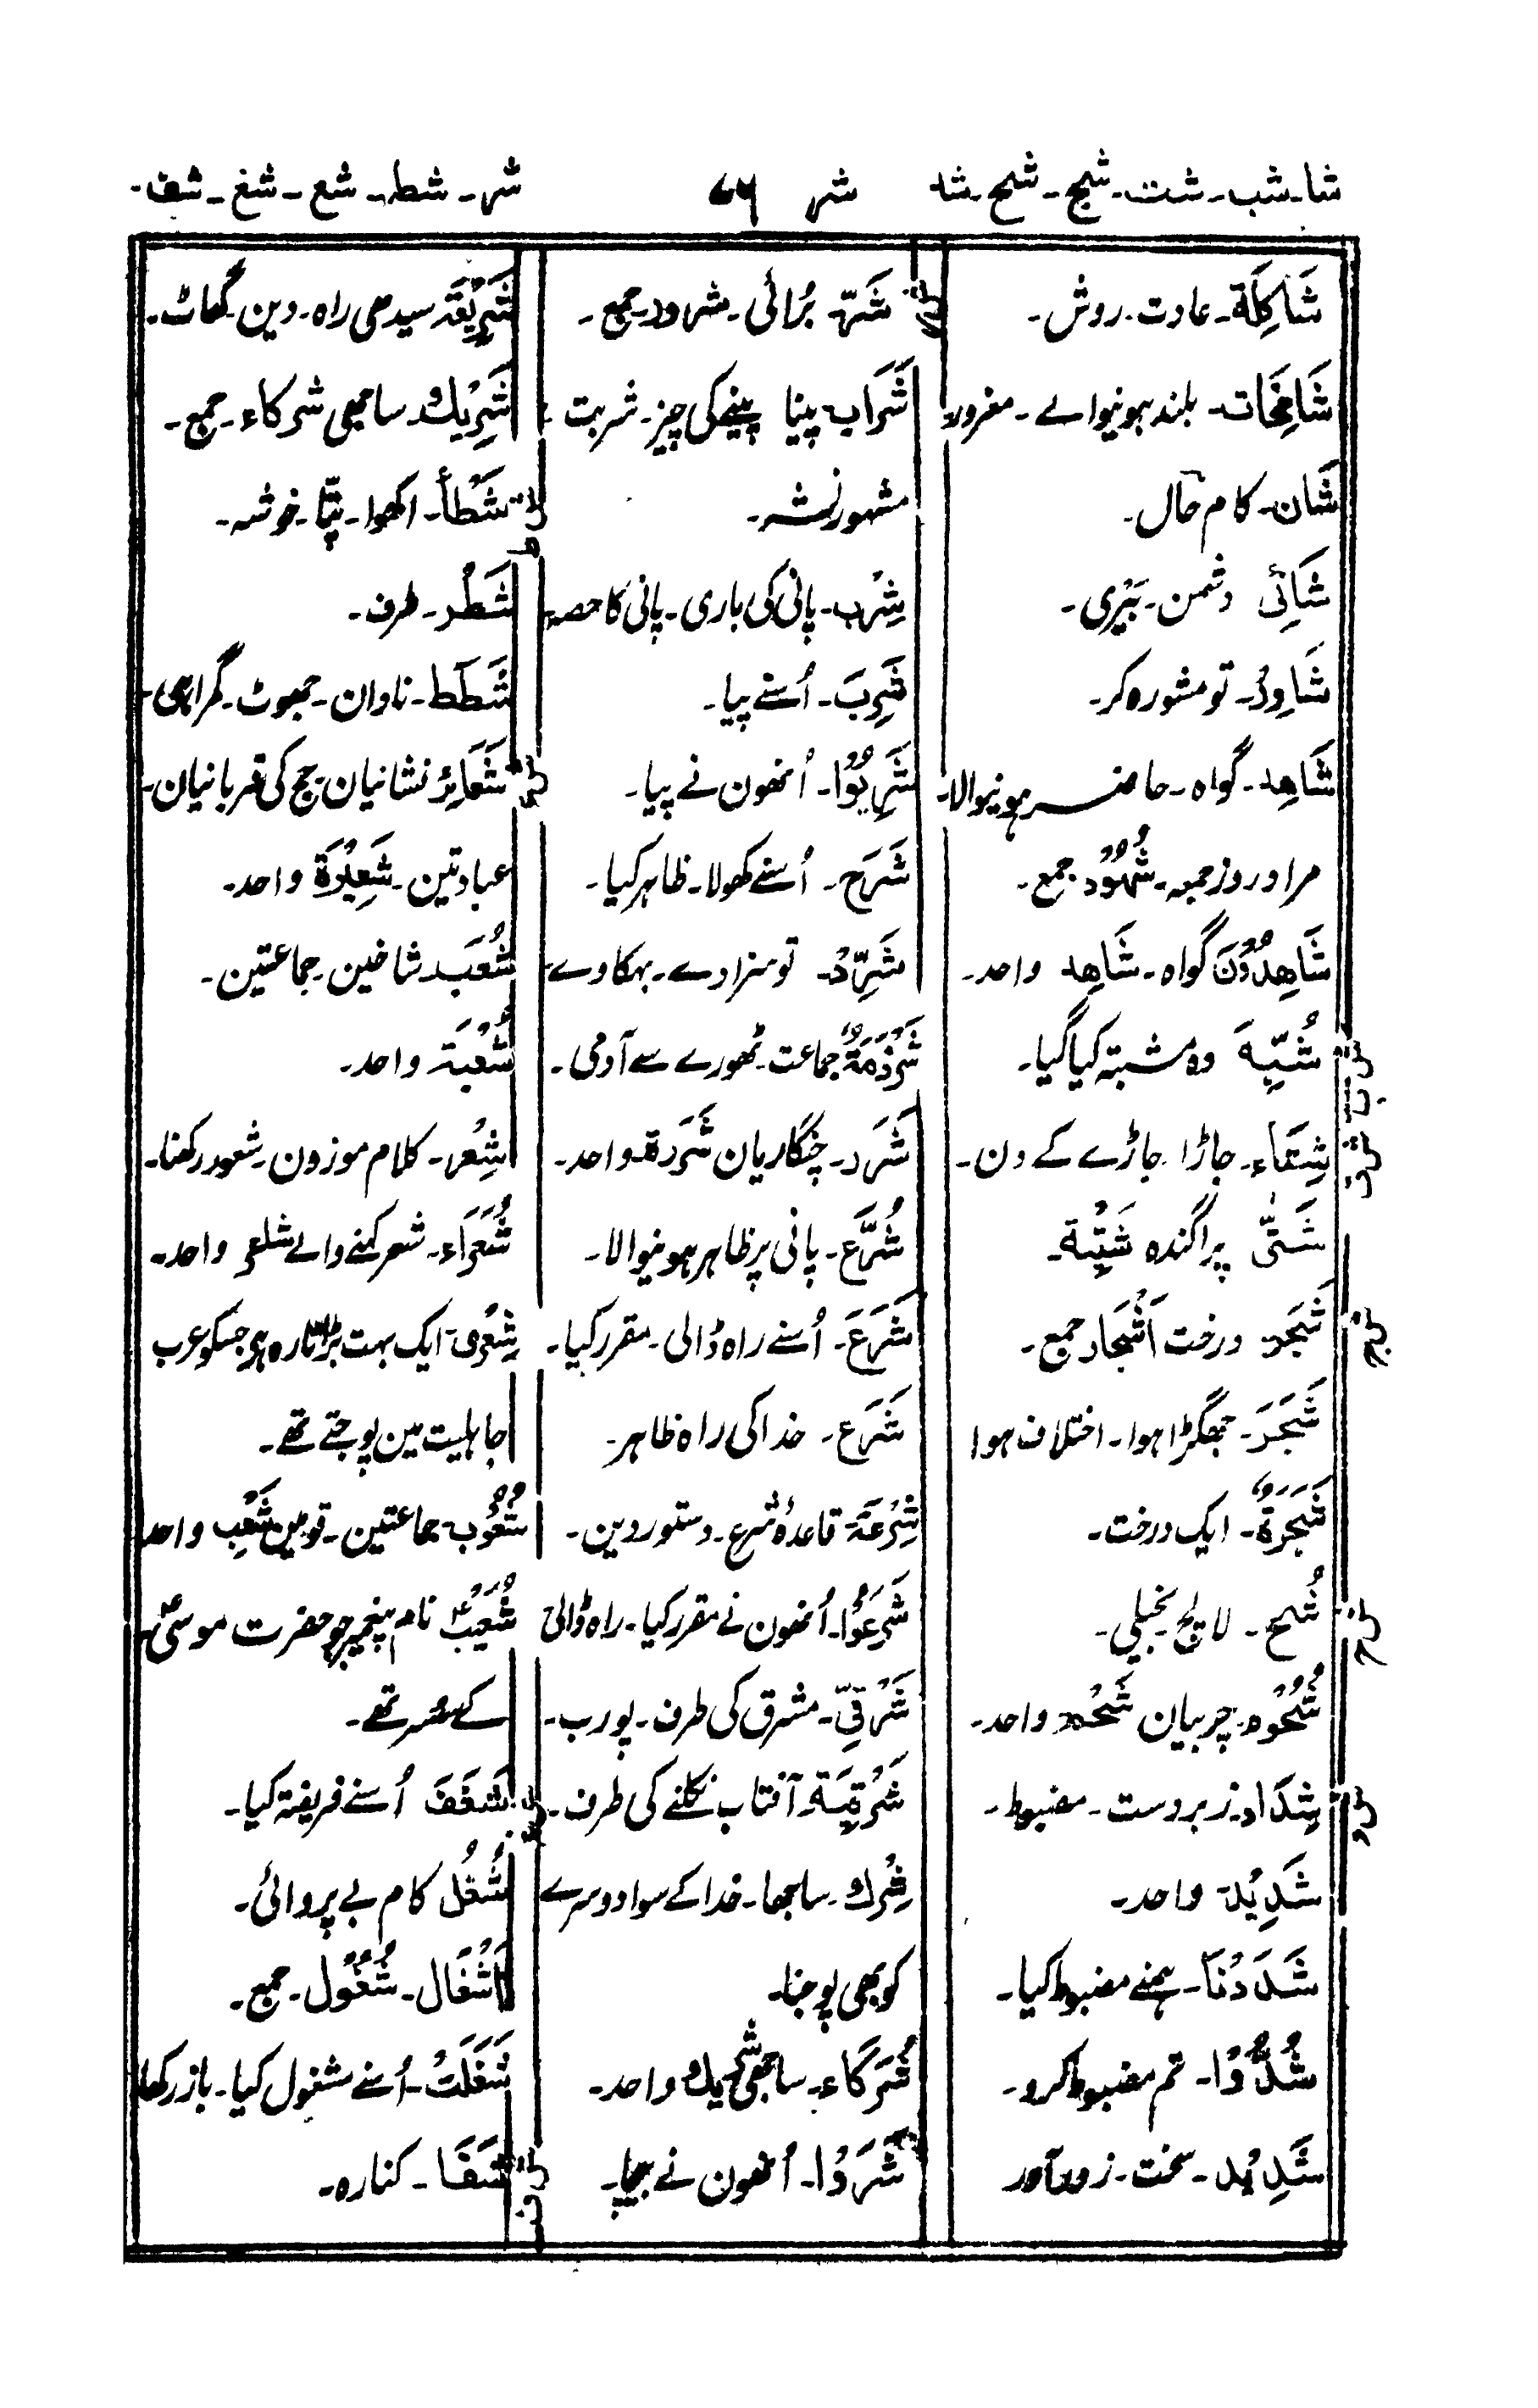 شا۔شب۔شت۔شج۔شح۔شد
شر ۷۶
شر۔شط۔شع۔شغ۔شف۔
شَاكِلَة۔ عادت۔ روش۔
شَامِخَات۔ بلند ہونیوالے۔ مغرور۔
شَان۔ کام حال۔
شَانِئ دشمن۔ بَیْری۔
شَاوِرْ۔ تو مشورہ کر۔
شَاهِد۔ گواہ۔ حاضر ہونیوالا۔
مراد روز جمعہ۔ شُهُوْد جمع۔
شَاهِدُوْنَ گواہ۔ شَاهِد واحد۔
شُبِّهَ وہ مشتبہ کیا گیا۔
شب
شِتَاء۔ جاڑا۔ جاڑے کے دن۔
شت
شَتّٰى پراگندہ شَتِّيَة۔
شَجَر درخت اَشْجَار جمع۔
شج
شَجَرَ۔ جھگڑا ہوا۔ اختلاف ہوا
شَجَرَةٌ۔ ایک درخت۔
شُح۔ لالچ۔ بخیلی۔
شح
شُحُوْم۔ چربیان شَحْم واحد۔
شِدَاد۔ زبردست۔ مضبوط۔
شد
شَدِيْد واحد۔
شَدَدْنَا۔ ہمنے مضبوط کیا۔
شُدُّوْا۔ تم مضبوط کرو۔
شَدِيْد۔ سخت۔ زورآور
شر
شَرّ۔ بُرائی۔ شرور۔ جمع۔
شَرَاب۔ پینا پینے کی چیز۔ شربت۔
مشہور نشہ۔
شِرْب۔ پانی کی باری۔ پانی کا حصہ۔
شَرِبَ۔ اُسنے پیا۔
شَرِبُوْا۔ اُنھون نے پیا۔
شَرَحَ۔ اُسنے کھولا۔ ظاہر کیا۔
شَرِّدْ۔ تو سزا دے۔ بہکاوے۔
شِرْذِمَةٌ جماعت۔ تھورے سے آدمی۔
شَرَر۔ چنگاریان شَرَرَة واحد۔
شُرَّع۔ پانی پر ظاہر ہونیوالا۔
شَرَعَ۔ اُسنے راہ ڈالی۔ مقرر کیا۔
شَرَع۔ خدا کی راہ ظاہر۔
شِرْعَة قاعدۂ شرع۔ دستور دین۔
شَرَعُوْا۔ اُنھون نے مقرر کیا۔ راہ ڈالی
شَرْقِيّ۔ مشرق کی طرف۔ پورب۔
شَرْقِيَة۔ آفتاب نکلنے کی طرف۔
شِرْك۔ ساجھا۔ خدا کے سوا دوسرے
کو بھی پوجنا۔
شُرَكَاء۔ ساجھی شریک واحد۔
شَرَوْا۔ اُنھون نے بیچا۔
شَرِيْعَة سیدھی راہ۔ دین۔ گھاٹ۔
شَرِيْك۔ ساجھی شرکاء۔ جمع۔
شط
شَطْأ۔ اکھوا۔ پتّا۔ خوشہ۔
شَطْر۔ طرف۔
شَطَط۔ نادان۔ جھوٹ۔ گمراہی۔
شع
شَعَائِر نشانیان۔ حج کی قربانیان۔
عبادتین۔ شَعِيْرَة واحد۔
شُعَب۔ شاخین۔ جماعتین۔
شُعْبَة واحد۔
شِعْر۔ کلام موزون۔ شعور رکھنا۔
شُعَرَاء۔ شعر کہنے والے شاعر واحد۔
شِعْرٰى ایک بہت بڑا تارہ ہی جسکو عرب
جاہلیت مین پوجتے تھے۔
شُعُوْب۔ جماعتین۔ قومین شَعْب واحد
شُعَيْب نام پیغمبر جو حضرت موسٰیؑ
کے خسر تھے۔
شغ
شَغَفَ اُسنے فریفتہ کیا۔
شُغُل کام بے پروائی۔
اَشْغَال۔ شُغُوْل۔ جمع۔
شَغَلَتْ۔ اُسنے مشغول کیا۔ باز رکھا
شف
شَفَا۔ کنارہ۔